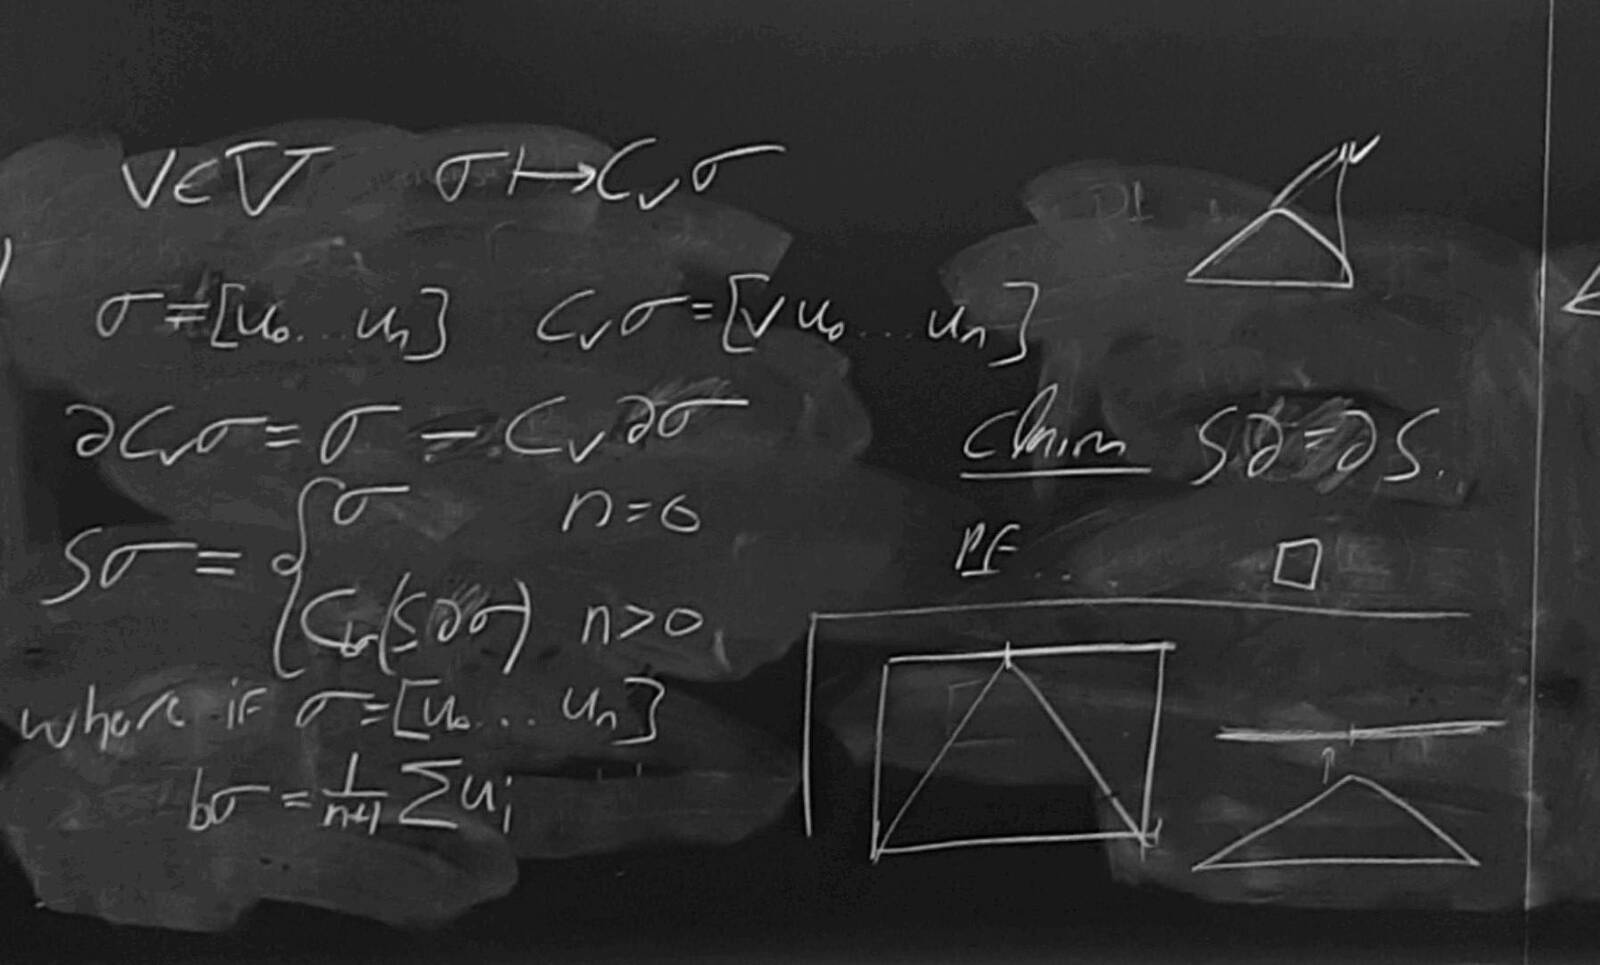 v∈∇ σ↦C_vσ
σ=[u₀...uₙ] C_vσ=[v u₀...uₙ]
∂C_vσ=σ-C_v∂σ
Sσ={σ n=0
C_bσ(S∂σ) n>0
where if σ=[u₀...uₙ]
bσ=1/(n+1) Σu_i
v
Claim S∂=∂S.
PF...□